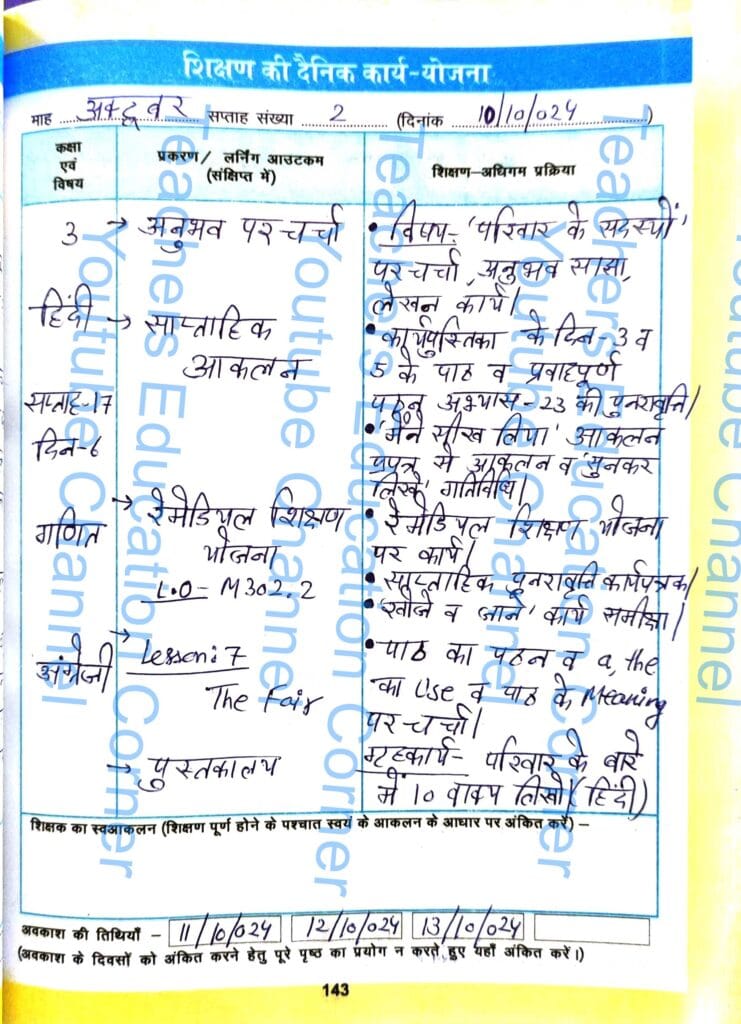 शिक्षण की दैनिक कार्य-योजना
माह अक्टूबर सप्ताह संख्या 2 (दिनांक 10/10/024)
कक्षा एवं विषय
प्रकरण/ लर्निंग आउटकम (संक्षिप्त में)
शिक्षण-अधिगम प्रक्रिया
3 → अनुभव पर चर्चा
हिंदी → साप्ताहिक
आकलन
सप्ताह-17
दिन-6
गणित → रेमेडियल शिक्षण
योजना
L.O- M302.2
अंग्रेजी → Lesson: 7
The Fair
→ पुस्तकालय
• विषय- 'परिवार के सदस्यों'
पर चर्चा, अनुभव साझा,
लेखन कार्य।
• कार्यपुस्तिका के दिन-3 व
5 के पाठ व प्रवाहपूर्ण
पठन अभ्यास-23 की पुनरावृत्ति।
• 'मैंने सीख लिया' आकलन
प्रपत्र से आकलन व 'सुनकर
लिखें' गतिविधि।
• रेमेडियल शिक्षण योजना
पर कार्य।
• साप्ताहिक पुनरावृत्ति कार्यपत्रक।
• 'खोजें व जानें' कार्य समीक्षा।
• पाठ का पठन व a, the
का Use व पाठ के Meaning
पर चर्चा।
गृहकार्य- परिवार के बारे
में 10 वाक्य लिखो। (हिंदी)
शिक्षक का स्वआकलन (शिक्षण पूर्ण होने के पश्चात स्वयं के आकलन के आधार पर अंकित करें) –
अवकाश की तिथियाँ – 11/10/024 12/10/024 13/10/024
(अवकाश के दिवसों को अंकित करने हेतु पूरे पृष्ठ का प्रयोग न करते हुए यहाँ अंकित करें।)
143
Teachers Education Corner
Youtube Channel
Teachers Education Corner
Youtube Channel
Teachers Education Corner
Youtube Channel